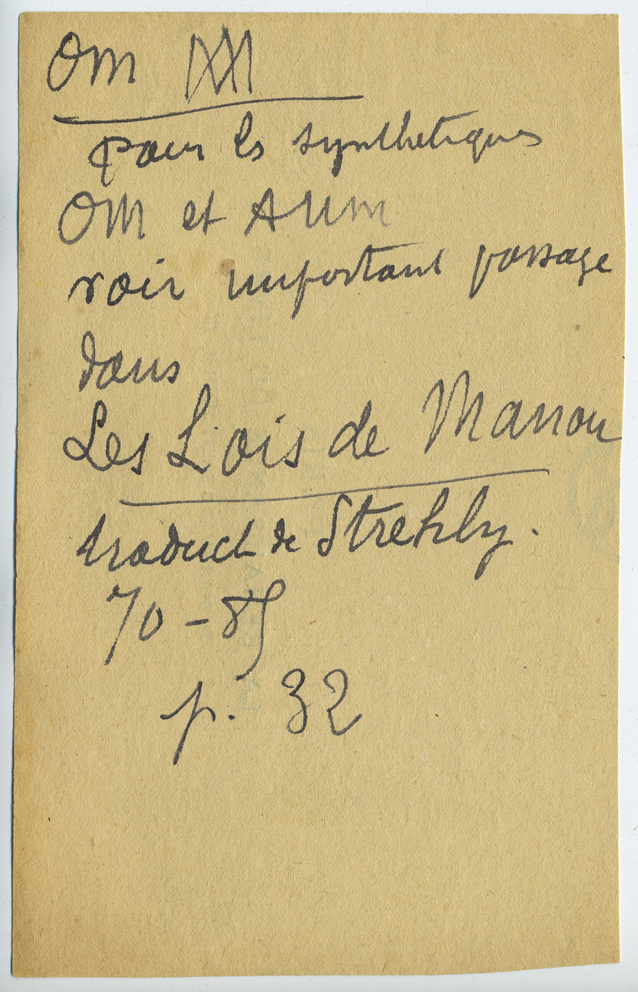 Om
pour les synthetiques
OM et AUM
voir important passage
dans
Les Lois de Manou
traduct de Strehly.
70-85
p. 32